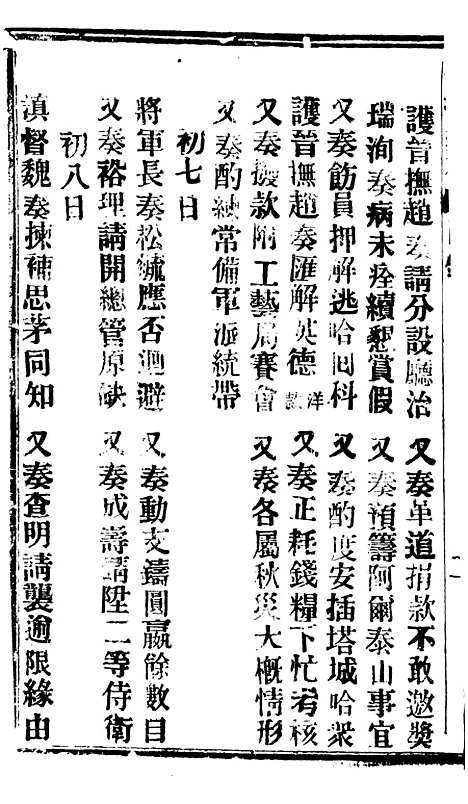 護晉撫趙奏請分設廳治　又奏革道捐款不敢邀獎
瑞洵奏病未痊續懇賞假　又奏預籌阿爾泰山事宜
又奏飭員押解逃哈回科　又奏酌度安插塔城哈衆
護晉撫趙奏匯解英德洋款　又奏正耗錢糧下忙考核
又奏撥款附工藝局賽會　又奏各屬秋災大概情形
又奏酌練常備軍派統帶
初七日
將軍長奏松毓應否迴避　又奏動支鑄圓贏餘數目
又奏裕理請開總管原缺　又奏成壽請陞二等侍衛
初八日
滇督魏奏揀補思茅同知　又奏查明請襲逾限緣由